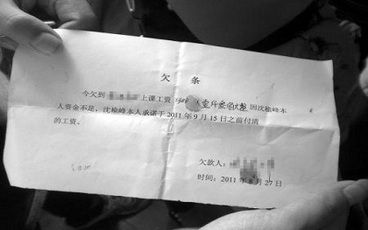 欠 条
今欠到 上课工资 因沈榆峰本
人资金不足，沈榆峰本人承诺于 2011 年 9 月 15 日之前付清
的工资、
欠款人：
时间：2011 年 8 月 27 日